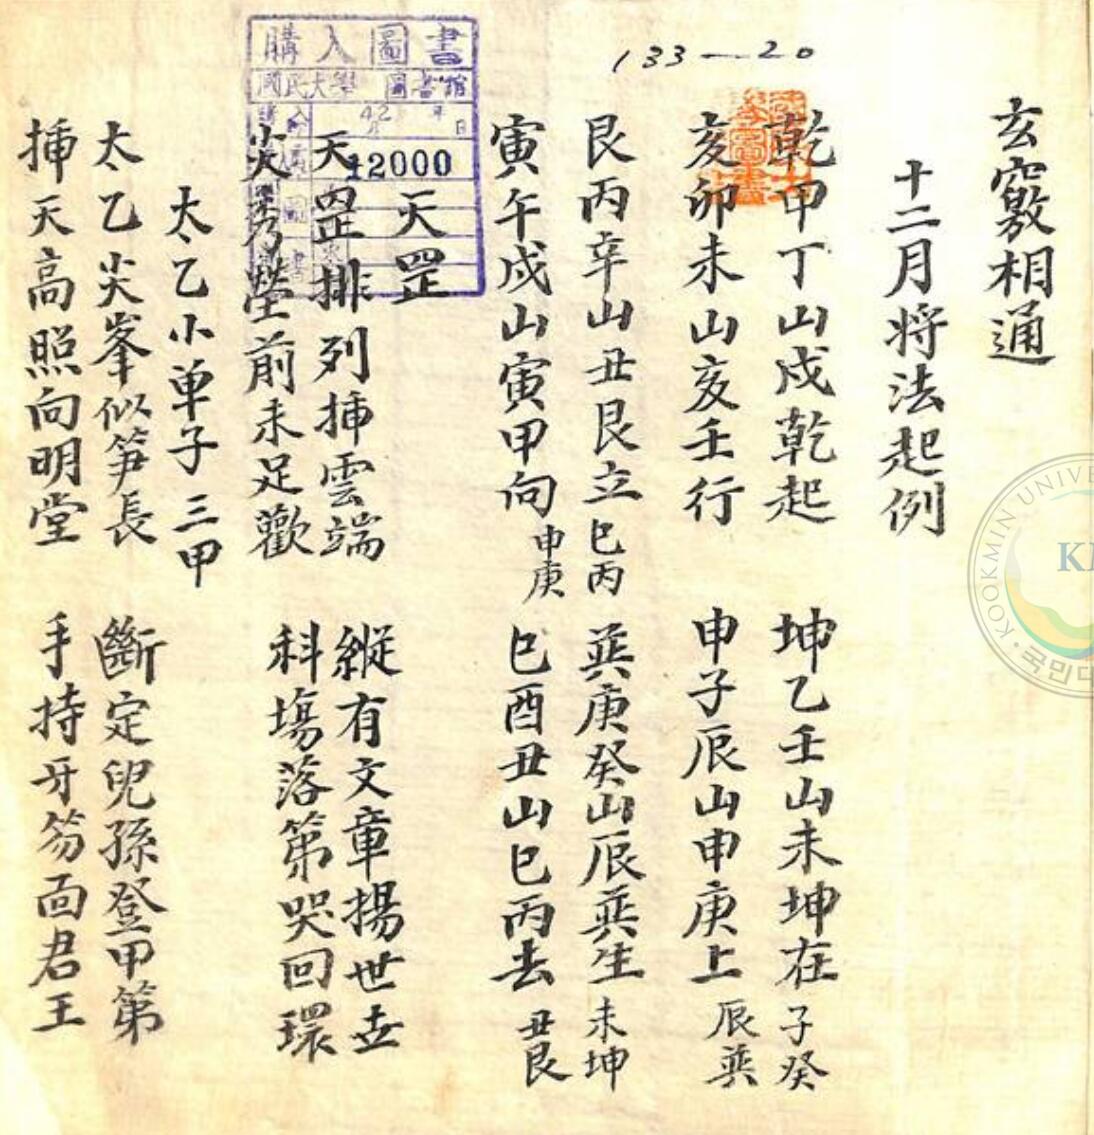 133-20
玄竅相通
十二月将法起例
乾甲丁山戌乾起 坤乙壬山未坤在 子癸
亥卯未山亥壬行 申子辰山申庚上 辰巽
艮丙辛山丑艮立 巳丙 巽庚癸山辰巽生 未坤
寅午戌山寅甲向 申庚 巳酉丑山巳丙去 丑艮
天罡
天罡排列揷雲端 縱有文章揚世去
尖秀塋前未足歡 科塲落第哭回環
太乙小单子三甲
太乙尖峯似笋長 斷定兒孫登甲第
揷天高照向明堂 手持牙笏面君王
購入圖書
國民大學 圖書館
42 年
月 日
12000
KOOKMIN UNIVE
KM
국민대